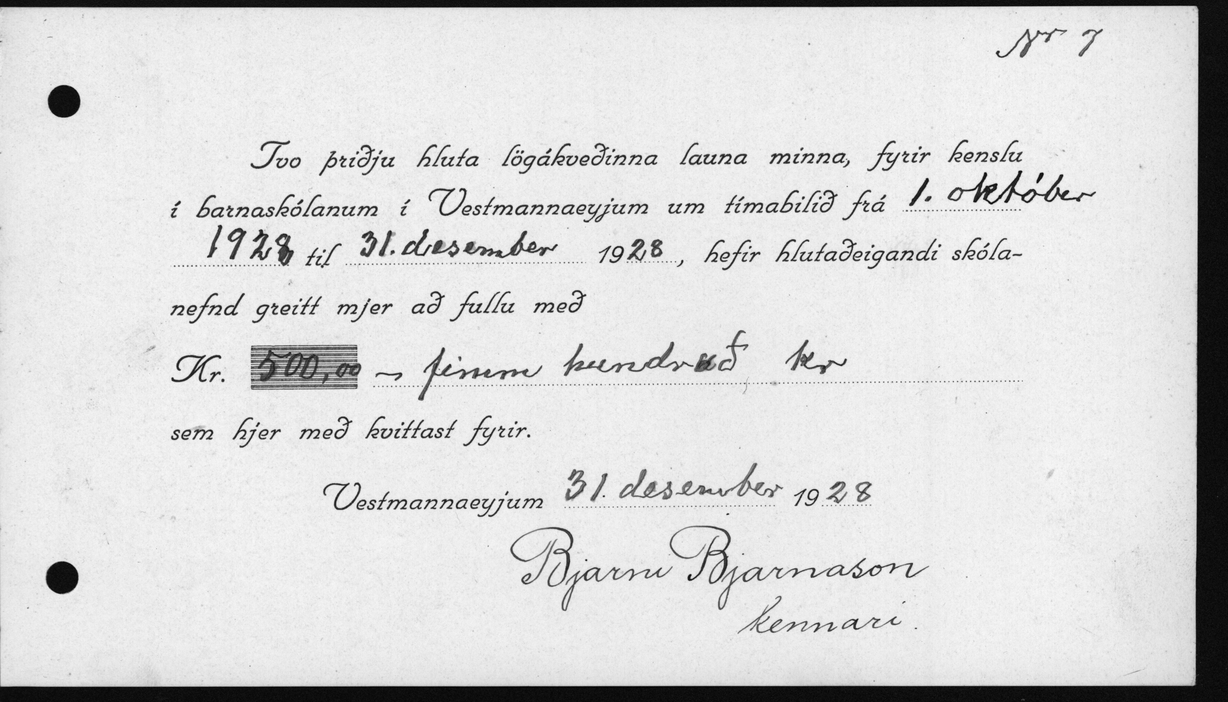 Nr 7
Tvo þriðju hluta lögákveðinna launa minna, fyrir kenslu
í barnaskólanum í Vestmannaeyjum um tímabilið frá 1. október
1928 til 31. desember 1928, hefir hlutaðeigandi skóla-
nefnd greitt mjer að fullu með
Kr. 500,00 ~ fimm hundruð kr
sem hjer með kvittast fyrir.
Vestmannaeyjum 31. desember 1928
Bjarni Bjarnason
kennari.